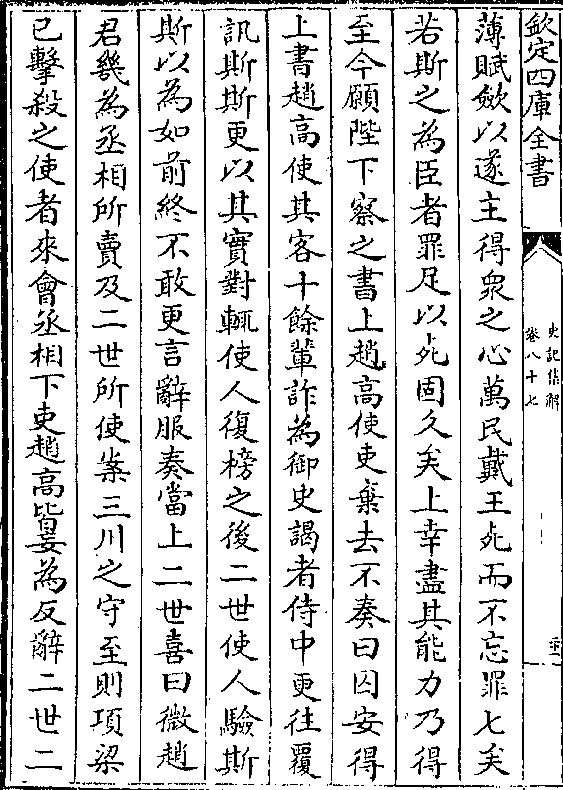 欽定四庫全書
史記集解
卷八十七
薄賦斂以遂主得衆之心萬民戴王死而不忘罪七矣
若斯之為臣者罪足以死固久矣上幸盡其能力乃得
至今願陛下察之書上趙高使吏棄去不奏曰囚安得
上書趙高使其客十餘輩詐為御史謁者侍中更往覆
訊斯斯更以其實對輒使人復榜之後二世使人驗斯
斯以為如前終不敢更言辭服奏當上二世喜曰微趙
君幾為丞相所賣及二世所使案三川之守至則項梁
已擊殺之使者來會丞相下吏趙高皆妄為反辭二世二